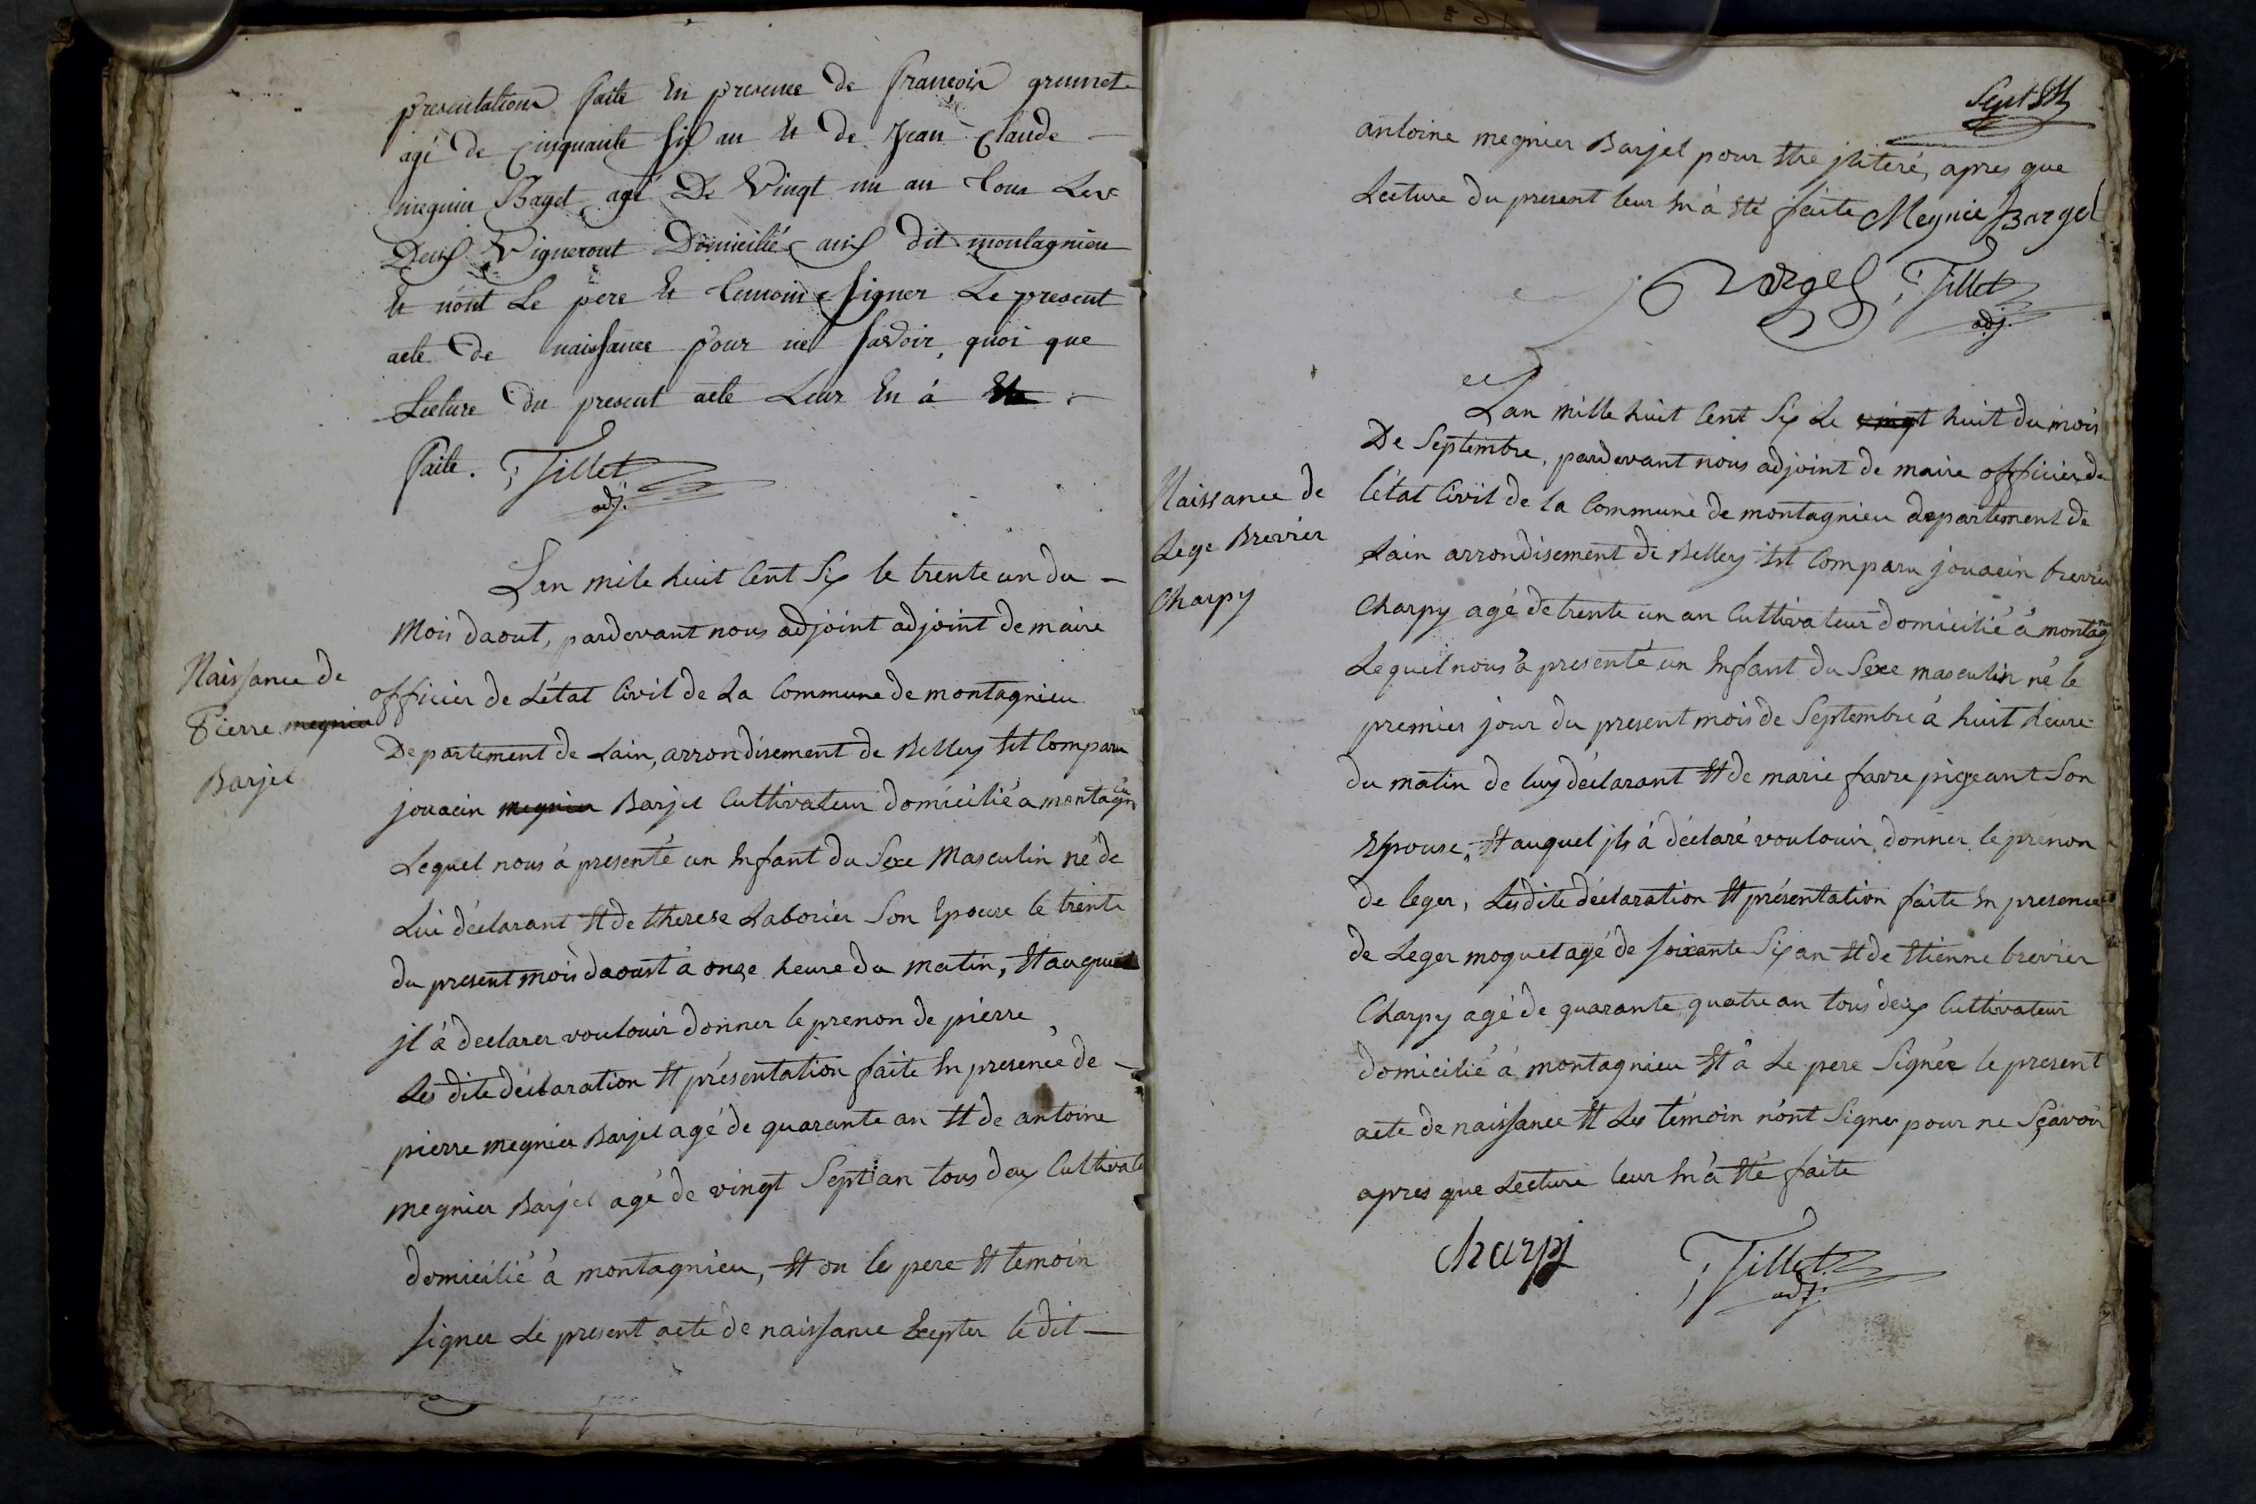 presentation faite En presence de françois grumet
agé de Cinquante six an Et de Jean Claude
megnier Bargel agé De Vingt un an tous Les
Deux Vigneront Domicilié aus dit montagnieu
Et n'ont Le pere Et temoin signer Le present
acte De naissance pour ne savoir, quoi que
Lecture du present acte Leur En à Ete
faite. Tillet
adj.
Lan mile huit Cent Six le trente un du
Mois daout, pardevant nous adjoint adjoint de maire
Naissance de
Pierre megnier
Barjel
officier de L'état Civil de La Commune de montagnieu
Departement de Lain, arrondisement de Belley Est Comparu
jouacin megnier Barjel Cultivateur domicilié a montagnieu
Lequel nous à presenté un Enfant du Sexe Masculin né de
Lui déclarant Et de therese Laborier Son Epouse le trente
du present mois daoust à onze heure du matin, Et auquel
jl à declarer voulouir donner le prenon de pierre
Les dite déclaration Et présentation faite En presence de
pierre megnier Barjel agé de quarante an Et de antoine
megnier Barjel agé de vingt Sept an tous deux Cultivate
domicilié à montagnieu, Et on le pere Et temoin
signer Le present acte de naissance Excepter le dit
Sept
antoine megnier Barjel pour Etre jliteré, apres que
Lecture du present leur En à Eté faite Megnie Bargel
Bargel Tillet
adj.
Lan mille huit Cent Six Le vingt huit du mois
De Septembre, pardevant nous adjoint de maire offficier de
Naissance de
Lege Brevier
Charpy
l'état Civil de la Commune de montagnieu departement de
Lain arrondisement de Belley Est Comparu jouacin brevier
Charpy agé de trente un an Cultivateur domicilié à montagn
Lequel nous à presenté un Enfant du Sexe masculin né le
premier jour du present mois de Septembre à huit heure
du matin de luy déclarant Et de marie favre pigeant Son
Epouse, Et auquel jls à déclaré voulouir donner le prenon
de leger, Lesdite déclaration Et présentation faite En presence
de Leger moquet agé de soixante Six an Et de Etienne brevier
Charpy agé de quarante quatre an tous deux Cultivateur
domicilié à montagnieu Et à Le pere Signée le present
acte de naissance Et Les témoin n'ont Signer pour ne Sçavoir
apres que Lecture leur En à Eté faite
Charpj Tillet
adj.